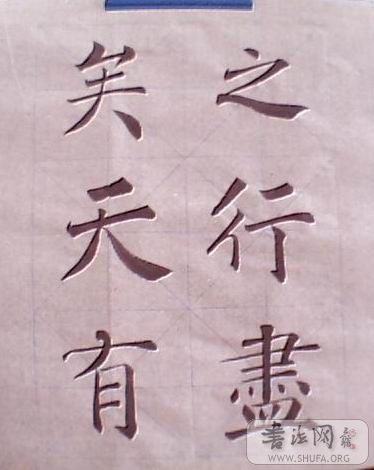 之行盡
矣天有
書法网
WWW.SHUFA.ORG